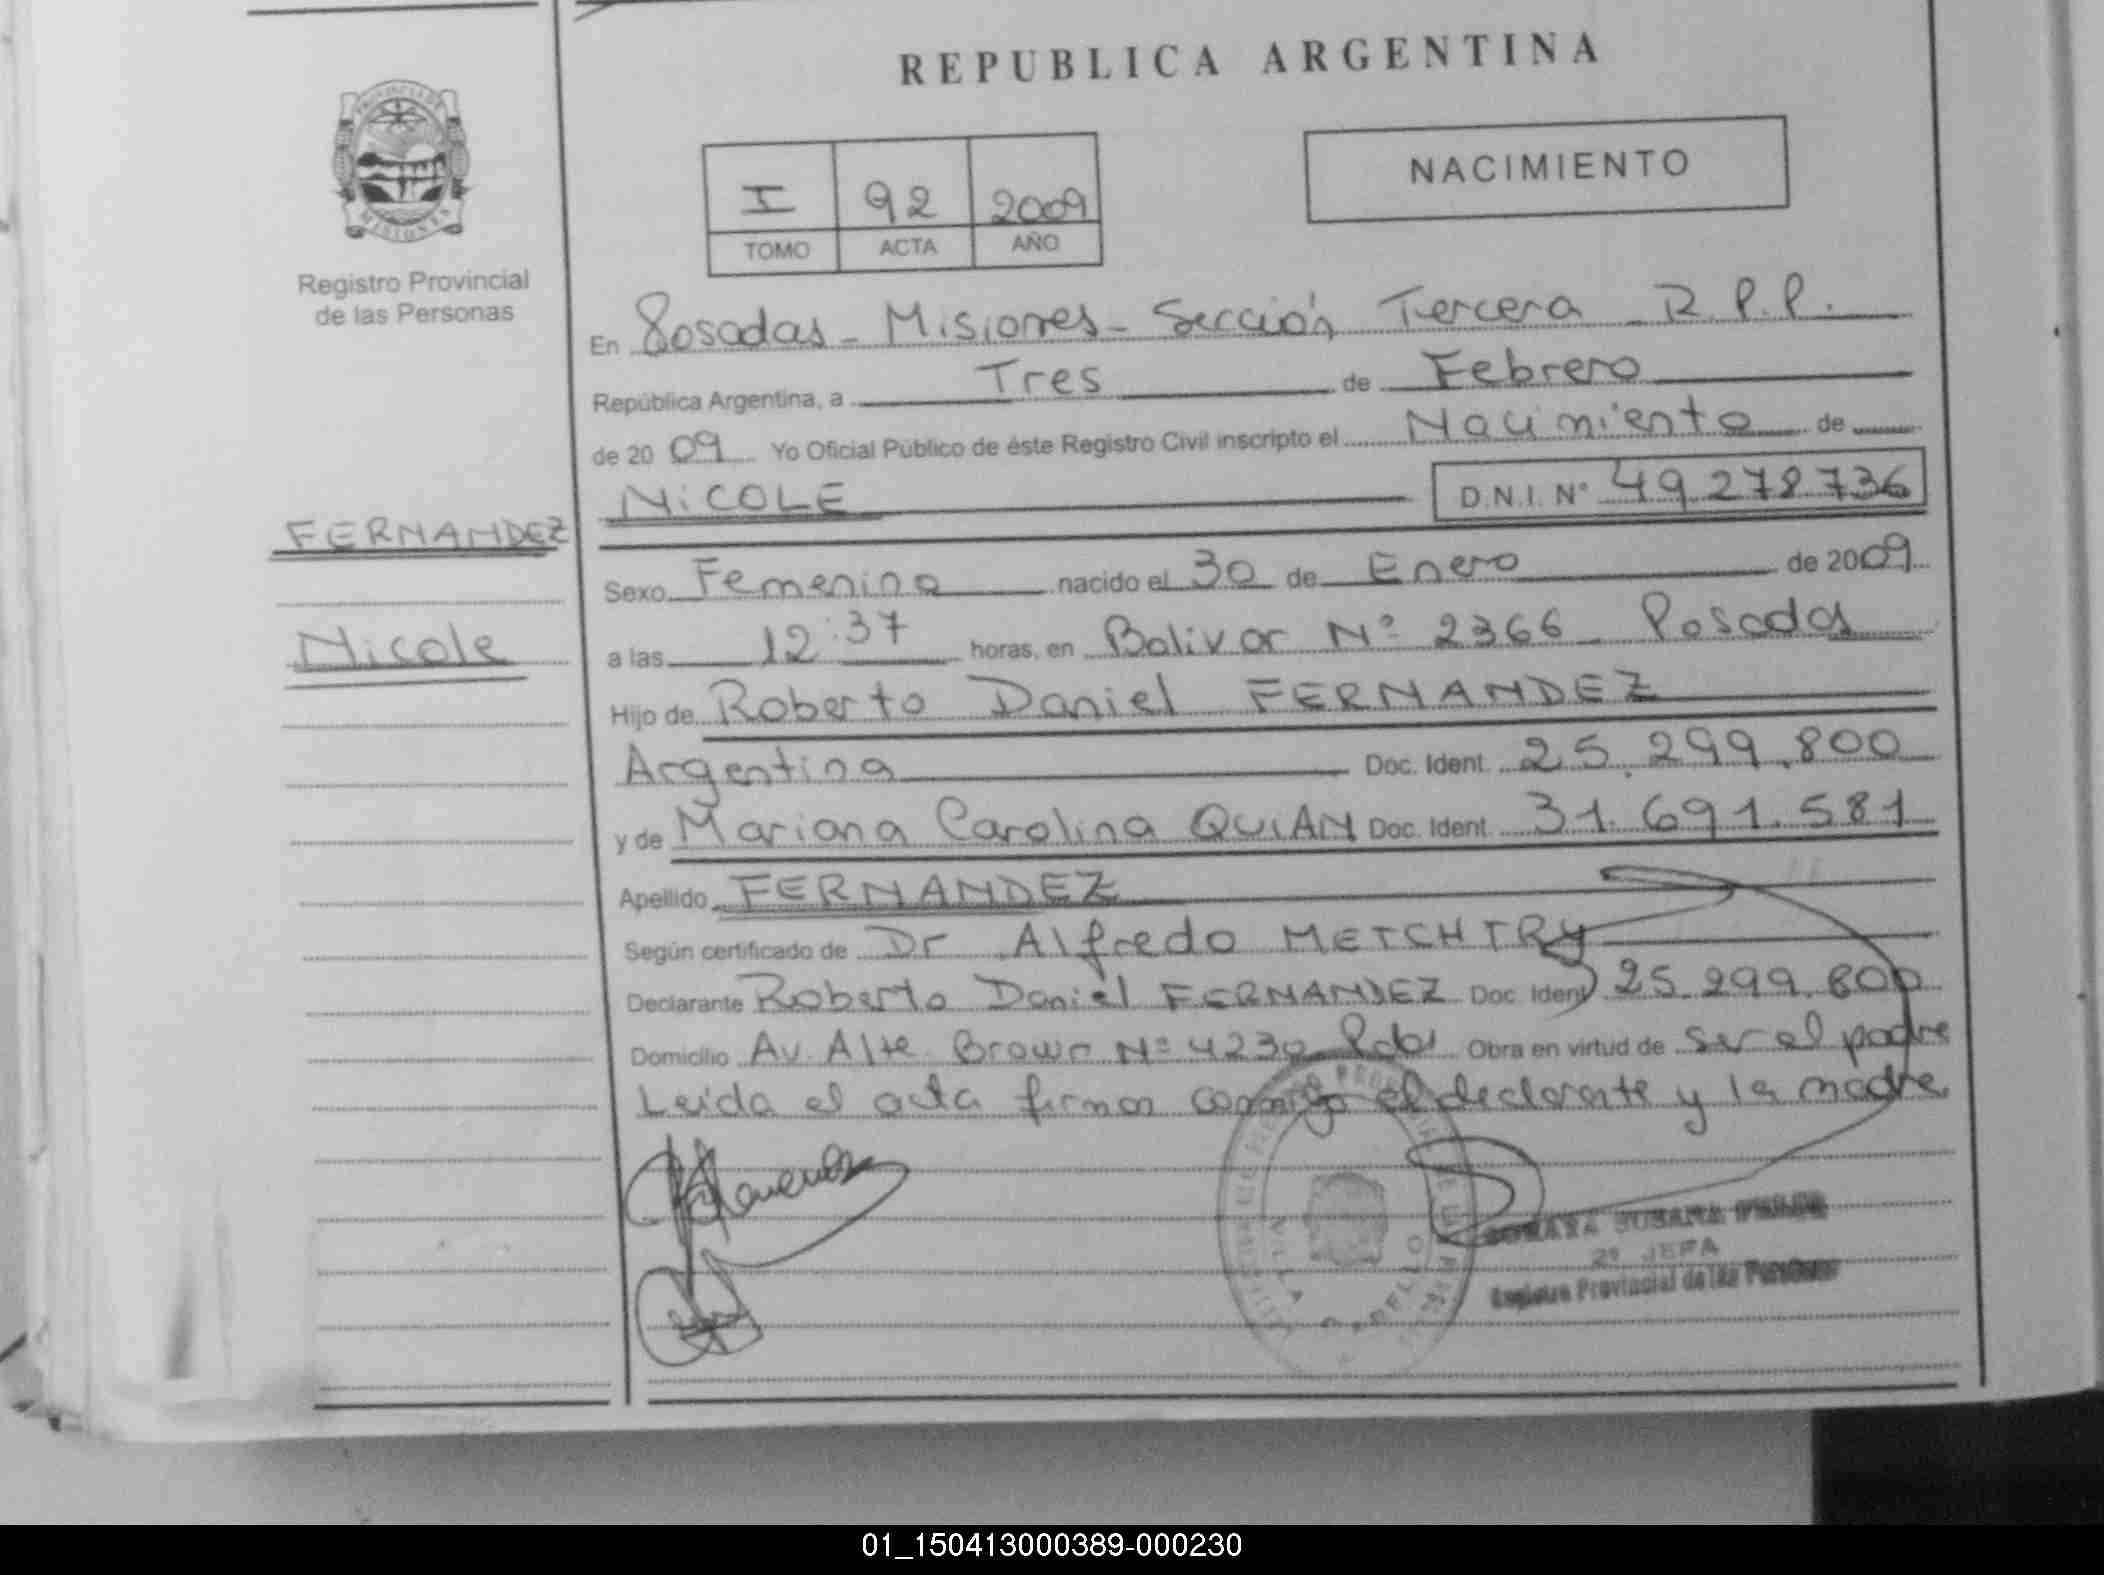 REPUBLICA ARGENTINA
NACIMIENTO
I 92 2009
TOMO ACTA AÑO
Registro Provincial
de las Personas
En Posadas - Misiones - Sección Tercera - R.P.P.
República Argentina, a Tres de Febrero
de 2009 Yo Oficial Público de éste Registro Civil inscripto el Nacimiento de
NiCOLE D.N.I. N° 49.278.736
FERNANDEZ
Sexo Femenino nacido el 30 de Enero de 2009
Nicole
a las 12:37 horas, en Bolivar N° 2366 - Posadas
Hijo de Roberto Daniel FERNANDEZ
Argentina Doc. Ident. 25.299.800
y de Mariana Carolina QUIAN Doc. Ident. 31.691.581
Apellido FERNANDEZ
Según certificado de Dr. Alfredo
Declarante Roberto Daniel FERNANDEZ Doc. Ident 25.299.800
Domicilio Av. Alte. Brown N° 4230 Pdas Obra en virtud de ser el padre
Leida el acta firman conmigo el declarante y la madre
SUSANA
2º JEFA
Registro Provincial de las Personas
01_150413000389-000230